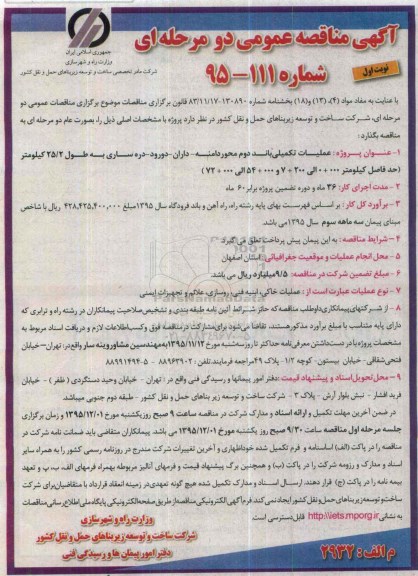 جمهوری اسلامی ایران
وزارت راه و شهرسازی
شرکت مادر تخصصی ساخت و توسعه زیربناهای حمل و نقل کشور
آگهی مناقصه عمومی دو مرحله ای
شماره ۱۱۱-۹۵
نوبت اول
با عنایت به مفاد مواد (۴)، (۱۳) و (۱۸) بخشنامه شماره ۱۳۰۸۹۰-۸۳/۱۱/۱۷ قانون برگزاری مناقصات موضوع برگزاری مناقصات عمومی دو
مرحله ای، شرکت ساخت و توسعه زیربناهای حمل و نقل کشور در نظر دارد پروژه با مشخصات اصلی ذیل را، بصورت عام دو مرحله ای به
مناقصه بگذارد:
۱- عنوان پروژه: عملیات تکمیلی باند دوم محور دامنه- داران-دورود-دره ساری به طول ۲۵/۲ کیلومتر
(حد فاصل کیلومتر ۰۰۰+۰ الی ۲۰۰+۷ و ۰۰۰+۵۴ الی ۰۰۰+۷۲)
۲- مدت اجرای کار: ۳۶ ماه و دوره تضمین پروژه برابر ۶۰ ماه
۳- برآورد کل کار: بر اساس فهرست بهای پایه رشته راه، راه آهن و باند فرودگاه سال ۱۳۹۵ مبلغ ۴۲۸,۴۲۵,۴۰۰,۰۰۰ ریال با شاخص
مبنای پیمان سه ماهه سوم سال ۱۳۹۵ می باشد.
۴- شرایط مناقصه: به این پیمان پیش پرداخت تعلق می گیرد
۵- محل انجام عملیات و موقعیت جغرافیائی: استان اصفهان
۶- مبلغ تضمین شرکت در مناقصه: ۹/۵ میلیارد ریال می باشد.
۷- نوع عملیات عبارت است از: عملیات خاکی، ابنیه فنی، روسازی، علائم و تجهیزات ایمنی
۸- از شرکتهای پیمانکاری داوطلب مناقصه که حائز شرایط آئین نامه طبقه بندی و تشخیص صلاحیت پیمانکاران در رشته راه و ترابری که
دارای پایه متناسب با مبلغ برآورد مذکور هستند، تقاضا می شود برای مشارکت در مناقصه فوق و کسب اطلاعات لازم و دریافت اسناد مربوط به
مشخصات پروژه با در دست داشتن معرفی نامه حداکثر تا روز سه شنبه مورخ ۱۳۹۵/۱۱/۱۲ به مهندسین مشاور وینه سار واقع در: تهران- خیابان
فتحی شقاقی- خیابان بیستون- کوچه ۱/۲ - پلاک ۴۹ مراجعه فرمایند. تلفن: ۸۸۹۶۳۹۰۲ - ۸۸۹۹۱۴۹۴-۵
۹- محل تحویل اسناد و پیشنهاد قیمت: دفتر امور پیمانها و رسیدگی فنی واقع در: تهران - خیابان وحید دستگردی (ظفر) - خیابان
فرید افشار - نبش بلوار آرش - پلاک ۳ - شرکت ساخت و توسعه زیر بناهای حمل و نقل کشور - طبقه دوم جنوبی میباشد
در ضمن آخرین مهلت تکمیل و ارائه اسناد و مدارک شرکت در مناقصه ساعت ۹ صبح روز یکشنبه مورخ ۱۳۹۵/۱۲/۰۱ و زمان برگزاری
جلسه مرحله اول مناقصه ساعت ۹/۳۰ صبح روز یکشنبه مورخ ۱۳۹۵/۱۲/۰۱ می باشد. پیمانکاران متقاضی باید ضمانت نامه شرکت در
مناقصه را در پاکت (الف) اساسنامه و فرم تکمیل شده خوداظهاری و آخرین تغییرات شرکت مندرج در روزنامه رسمی کشور را به همراه سایر
اسناد و مدارک و رزومه شرکت را در پاکت (ب) و همچنین برگ پیشنهاد قیمت و فرمهای آنالیز مربوطه بهمراه فرمهای الف، ب، پ و تعهد
بیمه نامه را در پاکت (ج) قرار دهند. ارسال اسناد و مدارک تکمیل شده هیچ گونه تعهدی در زمینه انعقاد قرارداد با متقاضیان برای شرکت
ساخت و توسعه زیربناهای حمل و نقل کشور ایجاد نمی کند. فرم آگهی الکترونیکی مناقصه از طریق صفحه الکترونیکی پایگاه ملی اطلاع رسانی مناقصات
به نشانی http://iets.mporg.ir قابل دسترسی است.
وزارت راه و شهرسازی
شرکت ساخت و توسعه زیربناهای حمل و نقل کشور
دفتر امور پیمان ها و رسیدگی فنی
م الف: ۲۹۳۲